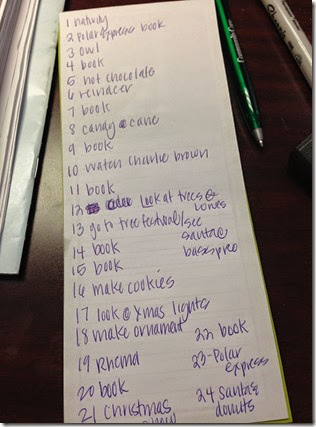 1 nativity
2 Polar Express book
3 owl
4 book
5 hot chocolate
6 reindeer
7 book
8 candy cane
9 book
10 watch charlie brown
11 book
12 look at trees @ Lowes
13 go to tree festival/see santa @ basspro
14 book
15 book
16 make cookies
17 look @ Xmas lights
18 make ornament
19 Rhema
20 book
21 Christmas
22 book
23-Polar express
24 santa & donuts